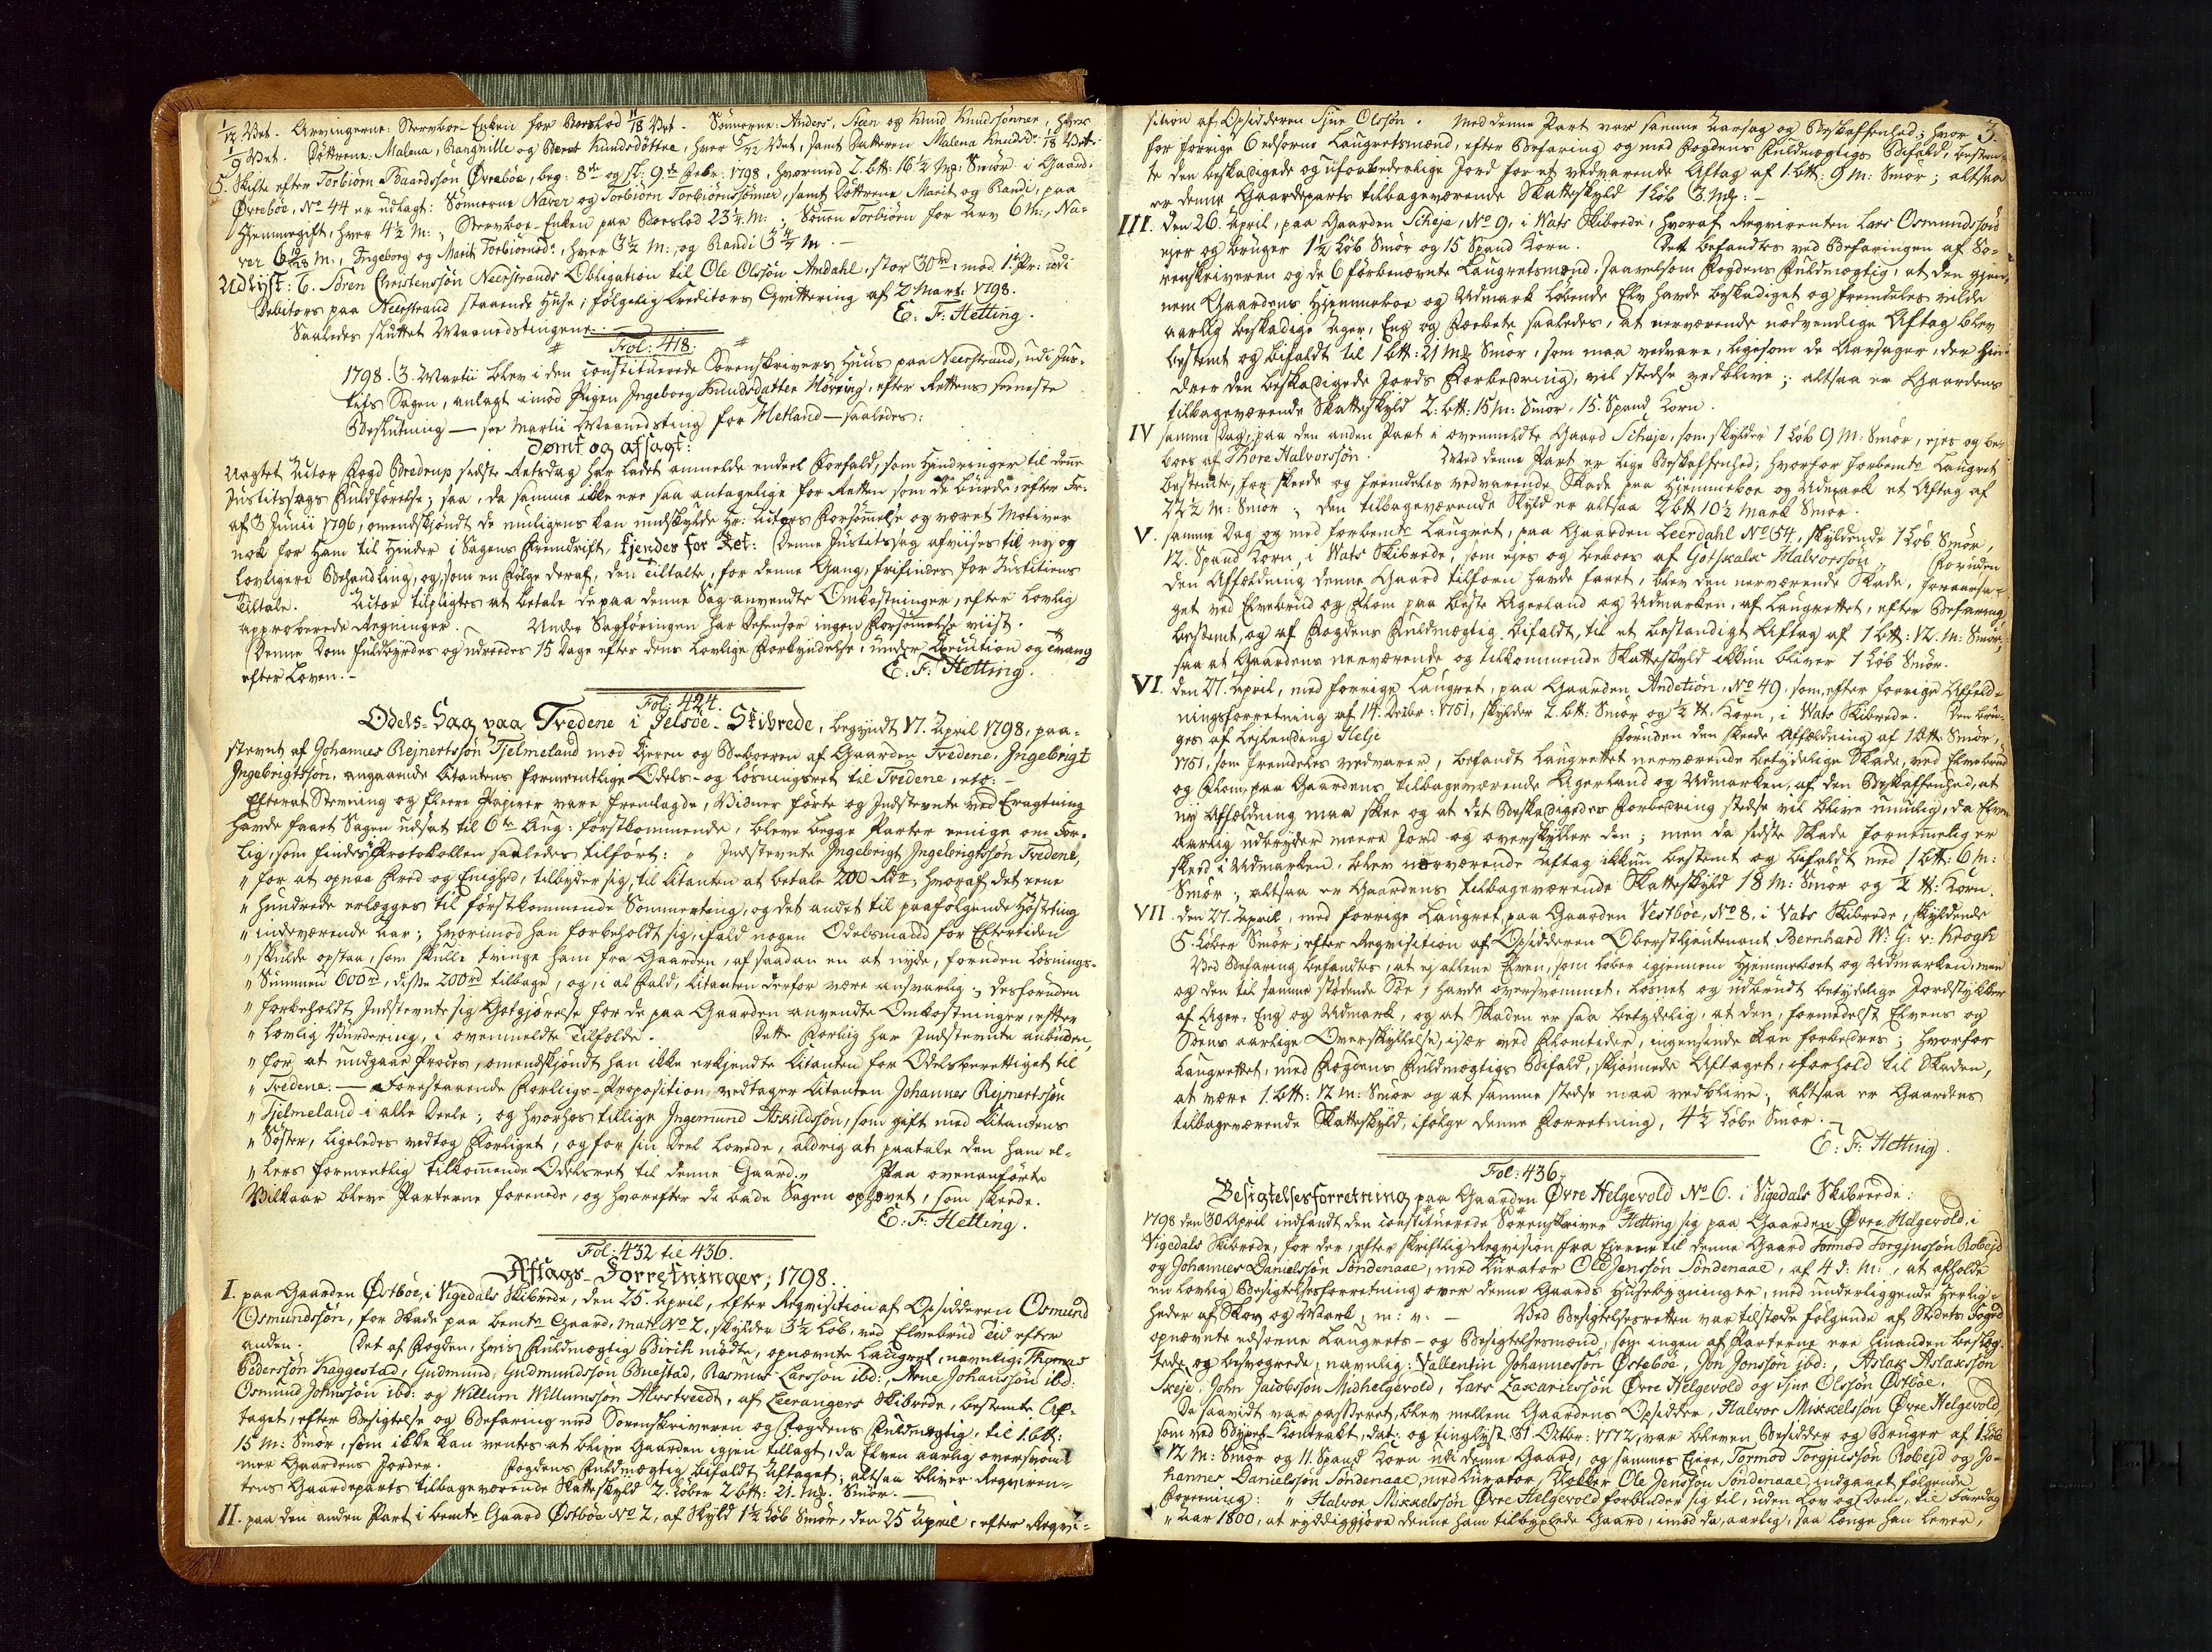 1/12 Vet. Arvingerne: Stervboe Enken for Boeslod 11/18 Vet. Sönnerne: Anders, Steen og Knud Knudsönner, hver
1/9 Vet. Döttrene: Malena, Rangnille og Beret Knudsdöttre, hver 5/72 Vet, samt Datteren Malena Knudsd: 1/18 Vet.
5. Skifte efter Torbiörn Baardssön Øvreböe, beg: 8de og sl: 9de Febr: 1798, hvormed 2. btt: 16 1/2 Mg: Smör i Gaard:
Øvreböe, No 44 er udlagt: Sönnerne Naver og Torbiörn Torbiörnssönner, samt Döttrene Marit og Randi, paa
Hjemmegift, hver 4 1/2 M:; Stervboe-Enken paa Boeslod 23 1/4 M:; Sönnen Torbiörn for Arv 6 M:, Na-
ver 6 M:, Ingeborg og Marit Torbiörnsd:, hver 3 1/2 M: og Randi 3 4/7 M.
Udlyst: 6. Sören Christenssön Neerstrands Obligation til Ole Olssön Andahl, stor 30 rd, mod 1. Pr: udi
Debitors paa Neerstrand staaende Huse; fölgelig Creditors Qvittering af 2 Marts 1798.
Saaledes sluttet Maanedstingene. E: F: Hetting.
Fol: 418.
1798. 3. Martii blev i den constituerede Sorenskrivers Huus paa Neerstrand, udi Jus-
titssagen, anlagt imod Pigen Ingeborg Knudsdatter Hövring, efter Rettens seeneste
Beslutning — see Martii Maanedsting for Hetland — saaledes:
Dömt og afsagt:
Uagtet Actor Fogd Bredrup sidste Retsdag har ladet anmelde endeel Forfald, som Hindringer til denne
Justitssags Fuldförelse; saa, da samme ikke ere saa antagelige for Retten som de burde, efter Fr.
af 3 Junii 1796, omendskjöndt de muligens kan undskylde Hr: Actors Forsömmelse og været Motiver
nok for Ham til Hinder i Sagens Fremdrift, kjendes for Ret: Denne Justitssag afviises til ny og
lovligere Behandling, og, som en Fölge deraf, den Tiltalte, for denne Gang, frifindes for Justitiens
Tiltale. Actor tilpligtes at betale de paa denne Sag anvendte Omkostninger, efter lovlig
approberede Regninger. Under Sagföringen har Defensor ingen Forsömmelse viist.
Denne Dom fuldbyrdes og udreedes 15 Dage efter dens lovlige Forkyndelse, under Execution og Tvang
efter Loven. E: F: Hetting.
Fol: 424.
Odels-Sag paa Tvedene i Jelsöe-Skibrede, begyndt 17. April 1798, paa-
stevnt af Johannes Rejnertssön Tjelmeland mod Ejeren og Beboeren af Gaarden Tvedene, Ingebrigt
Ingebrigtssön, angaaende Citantens formentlige Odels- og Lösningsret til Tvedene, etc:
Efterat Stevning og fleere Papirer vare fremlagde, Vidner förte og Indstevnte ved Eragtning
havde faaet Sagen udsat til 6te Aug: förstkommende, bleve begge Parter eenige om For-
lig, som findes i Protokollen saaledes tilfört: „Indstevnte Ingebrigt Ingebrigtssön Tvedene,
„for at opnaa Fred og Enighed, tilbyder sig, til Citanten at betale 200 Rdr; hvoraf det eene
„Hundrede erlægges til förstkommende Sommerting, og det andet til paafölgende Höstting
„indeværende Aar; hvorimod han forbeholdt sig, ifald nogen Odelsmand for Eftertiden
„skulde opstaa, som skulle tvinge ham fra Gaarden, af saadan en at nyde, foruden Lösnings-
„Summen 600 rd, disse 200 rd tilbage, og, i al Fald, Citanten derfor være ansvarlig; desforuden
„forbeholdt Indstevnte sig Godtgjörelse for de paa Gaarden anvendte Omkostninger, efter
„lovlig Vurdering, i ovenmeldte Tilfælde. Dette Forlig har Indstevnte anbuden,
„for at undgaae Proces, omendskjöndt han ikke erkjendte Citanten for Odelsberettiget til
„Tvedene. — Forestaaende Forligs-Proposition vedtager Citanten Johannes Rejnertssön
„Tjelmeland i alle Deele; og hvorhos tillige Ingemund Askildssön, som gift med Citantens
„Söster, ligeledes vedtog Forliget, og for sin Deel lovede, aldrig at paatale den ham el-
„lers formentlig tilkommende Odelsret til denne Gaard.„ Paa ovenanförte
Vilkaar bleve Parterne forenede, og hvorefter de bade Sagen ophævet, som skeede.
E: F: Hetting.
Fol: 432 til 436.
Aftags-Forretninger, 1798.
I. paa Gaarden Östböe, i Vigedals Skibrede, den 25. April, efter Reqvisition af Opsidderen Osmund
Osmundssön, for Skade paa bemte Gaard, Matr. No 2, skylder 3 1/2 Löb, ved Elvebrud Tid efter
anden. Det af Fogden, hvis Fuldmægtig Birch mödte, opnævnte Laugret, navnlig: Thomas
Pederssön Haggestad, Gudmund Gudmundssön Buestad, Rasmus Larssön ibd:, Arne Johanssön ibd:
Osmund Johnssön ibd: og Willum Willumssön Alvestveedt, af Leerangers Skibrede, bestemte Af-
taget, efter Besigtelse og Befaring med Sorenskriveren og Fogdens Fuldmægtig, til 1 btt:
15 M: Smör, som ikke kan ventes at blive Gaarden igjen tillagt, da Elven aarlig oversvöm-
mer Gaardens Jorder. Fogdens Fuldmægtig bifaldt Aftaget; altsaa bliver Reqviren-
tens Gaardeparts tilbageværende Skatteskyld 2. Löber 2 btt: 21. Mg. Smör.
II. paa den anden Part i bemte Gaard Östböe No 2, af Skyld 1 1/2 Löb Smör, den 25 April, efter Reqvi-
3.
sition af Opsidderen Sjur Olssön. Med denne Part var samme Aarsag og Beskaffenhed; hvor
for forrige 6 edsorne Laugretsmænd, efter Befaring og med Fogdens Fuldmægtigs Bifald, bestem-
te den beskadigede og uforbederlige Jord for et vedvarende Aftag af 1. btt: 9 M: Smör; altsaa
er denne Gaardeparts tilbageværende Skatteskyld 1 Löb 3. Mg:
III. den 26. April, paa Gaarden Scheje, No 9, i Vats Skibrede, hvoraf Reqvirenten Lars Osmundssön
ejer og bruger 1 1/2 Löb Smör og 15 Spand Korn. Det befandtes ved Befaringen af So-
renskriveren og de 6 förbenævnte Laugretsmænd, saavelsom Fogdens Fuldmægtig, at den gjen-
nem Gaardens Hjemmeboe og Udmark löbende Elv havde beskadiget og fremdeles vilde
aarlig beskadige Ager, Eng og Fæebete saaledes, at nerværende nödvendige Aftag blev
bestemt og bifaldt til 1 btt: 21 Mg Smör, som maa vedvare, ligesom de Aarsager, der hin-
drer den beskadigede Jords Forbedring, vil stedse vedblive; altsaa er Gaardens
tilbageværende Skatteskyld 2. btt: 15 M: Smör, 15. Spand Korn.
IV samme Dag, paa den anden Part i ovenmeldte Gaard Scheje, som skylder 1 Löb 9 M: Smör, ejes og be-
boes af Thore Halvorssön. Med denne Part er lige Beskaffenhed; hvorfor forbemte Laugret
bestemte, for skeede og fremdeles vedvarende Skade paa Hjemmeboe og Udmark et Aftag af
22 1/2 M: Smör; den tilbageværende Skyld er altsaa 2 btt 10 1/2 Mark Smör.
V. samme Dag og med forbemte Laugret, paa Gaarden Leerdahl No 54, skyldende 1 Löb Smör,
12. Spand Korn, i Vats Skibrede, som ejes og beboes af Gotskalk Halvorssön. Foruden
den Affældning denne Gaard tilforn havde faaet, blev den nerværende Skade, foraarsa-
get ved Elvebrud og Flom paa beste Agerland og Udmarken, af Laugrettet, efter Befaring
bestemt, og af Fogdens Fuldmægtig bifaldt, til et bestandigt Aftag af 1 btt: 12. M: Smör;
saa at Gaardens nerværende og tilkommende Skatteskyld ikkun bliver 1 Löb Smör.
VI. den 27. April, med forrige Laugret, paa Gaarden Andetiön, No 49, som, efter forrige Affæld-
ningsforretning af 14. Octbr: 1751, skylder 2. btt: Smör og 1/2 tt. Korn, i Vats Skibrede. Den bru-
ges af Leilending Helje foruden den skeede Affældning af 1 btt: Smör,
1751, som fremdeles vedvarer, befandt Laugrettet nerværende betydelige Skade, ved Elvebrud
og Flom, paa Gaardens tilbageværende Agerland og Udmarken, af den Beskaffenhed, at
ny Affældning maa skee og at det Beskadigedes Forbedring stedse vil blive umulig, da Elven
aarlig udbryder meere Jord og overskyller den; men da sidste Skade fornemmelig er
skeed i Udmarken, blev nerværende Aftag ikkun bestemt og bifaldt med 1 btt: 6 M:
Smör; altsaa er Gaardens tilbageværende Skatteskyld 18 M: Smör og 1/2 tt: Korn.
VII. den 27. April, med forrige Laugret, paa Gaarden Vestböe, No 8, i Vats Skibrede, skyldende
5. Löber Smör; efter Reqvisition af Opsidderen Oberstlieutenant Bernhard W: G: v: Krogh
Ved Befaring befandtes, at ej allene Elven, som löber igjennem Hjemmeboet og Udmarken, men
og den til samme stödende Söe, havde oversvömmet, lösnet og udbrudt betydelige Jordstykker
af Ager, Eng og Udmark, og at Skaden er saa betydelig, at den, formedelst Elvens og
Söens aarlige Overskyllelse, især ved Flomtider, ingensinde kan forbedres; hvorfor
Laugrettet, med Fogdens Fuldmægtigs Bifald, skjönnede Aftaget, i forhold til Skaden,
at være 1. btt: 12 M: Smör og at samme stedse maa vedblive; altsaa er Gaardens
tilbageværende Skatteskyld, ifölge denne Forretning, 4 1/2 Löbe Smör.
E: F: Hetting.
Fol: 436.
Besigtelsesforretning paa Gaarden Øvre Helgevold No 6. i Vigedals Skibreede:
1798 den 30 April indfandt den constituerede Sorenskriver Hetting sig paa Gaarden Øvre Helgevold, i
Vigedals Skibrede, for der, efter skriftlig Reqvision fra Ejerne til denne Gaard Tormod Torgjussön Robejd
og Johannes Danielssön Söndenaae, med Curator Ole Jenssön Söndenaae, af 4 d: M:, at afholde
en lovlig Besigtelsesforretning over denne Gaards Husebygninger, med underliggende Herlig-
heder af Skov og Mark, m: v: — Ved Besigtelsesretten var tilstæde fölgende af Stedets Foged
opnævnte edsorne Laugrets- og Besigtelsesmænd, som ingen af Parterne ere hinanden beslæg-
tede og besvogrede, navnlig: Vallentin Johannessön Østeböe, Jon Jonssön ibd:, Aslak Aslakssön
Skeje, John Jacobssön Midhelgevold, Lars Zascariessön Øvre Helgevold og Sjur Olssön Østböe.
Da saavidt var passeret, blev mellem Gaardens Opsidder, Halvor Mikkelssön Øvre Helgevold
som ved Byxel-Kontrakt, dat: og tinglyst 31. Octbr: 1772, var bleven Besidder og Bruger af 1. Löb
12 M: Smör og 11. Spand Korn udi denne Gaard, og sammes Ejere, Tormod Torgjussön Robejd og Jo-
hannes Danielssön Söndenaae, med Curator, Ole Jenssön Söndenaae, indgaaet fölgende
Foreening: „Halvor Mikkelssön Øvre Helgevold forbinder sig til, uden Lov og Dom, til Fardag
„Aar 1800, at ryddiggjöre denne ham tilbyxlede Gaard, imod da, aarlig, saa længe han lever,